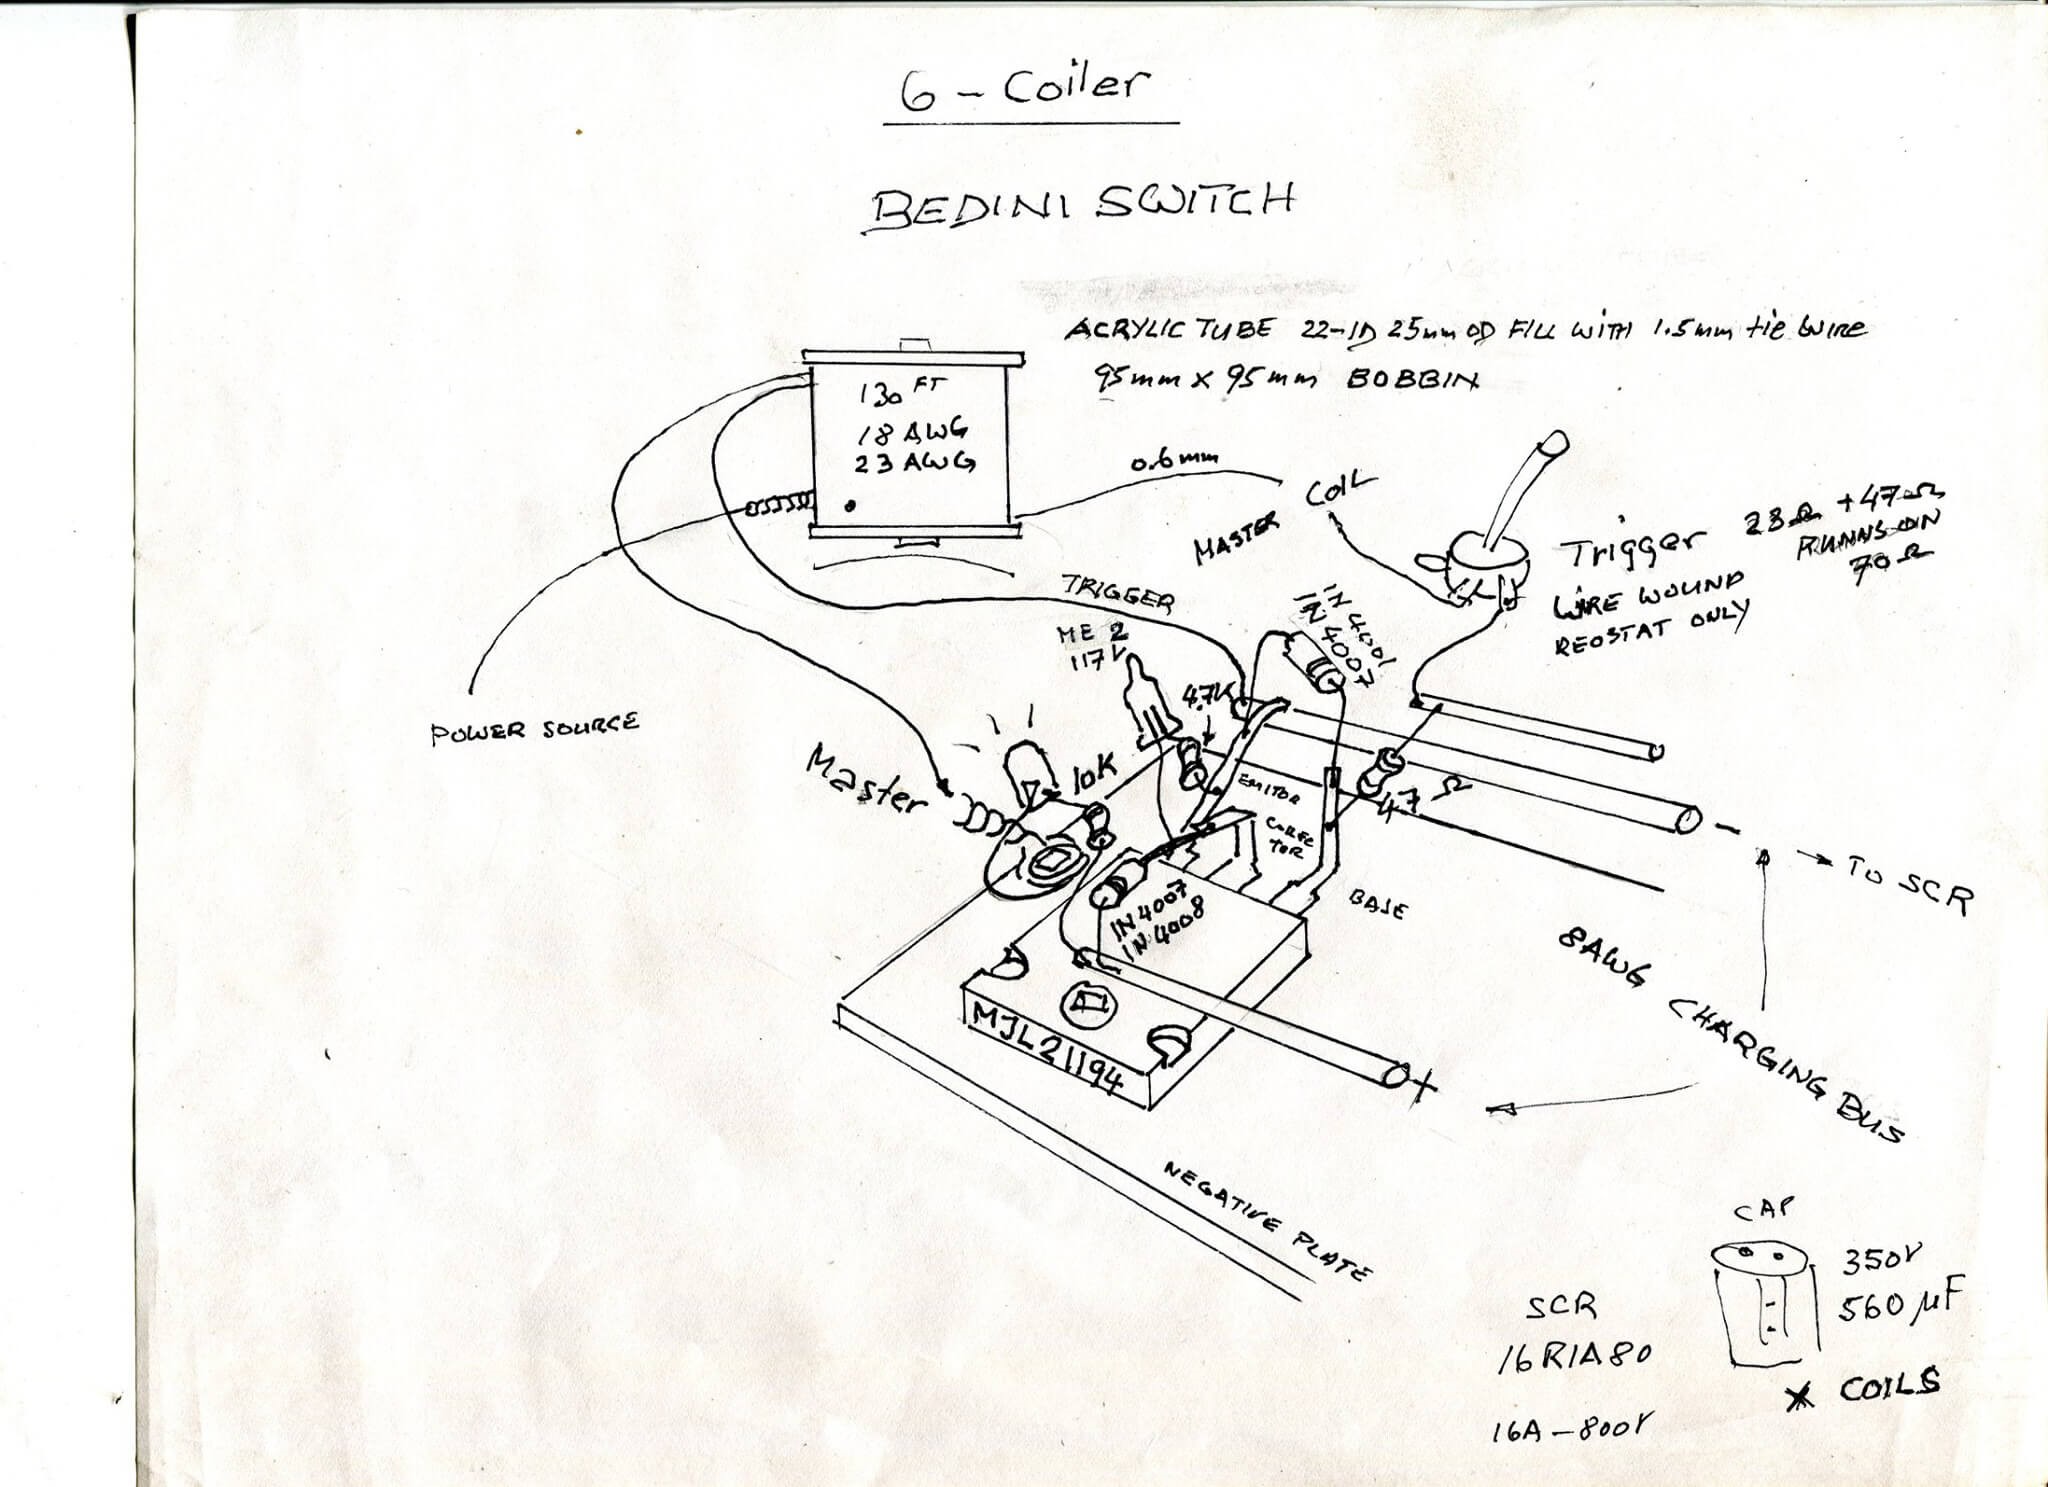 6 - Coiler
BEDINI SWITCH
ACRYLIC TUBE 22-ID 25mm OD FILL WITH 1.5mm tie WIRE
95mm x 95mm BOBBIN
130 FT
18 AWG
23 AWG
0.6mm
MASTER COIL
Trigger 23Ω + 47Ω
RUNNS ON
70Ω
WIRE WOUND
REOSTAT ONLY
TRIGGER
ME 2
117V
1N 4001
1N 4007
4.7K
POWER SOURCE
Master
10K
EMITOR
COLEC
TOR
47 Ω
BASE
-
→ TO SCR
1N4007
1N4008
MJL21194
+
8AWG CHARGING BUS
NEGATIVE PLATE
CAP
350V
560 µF
X COILS
SCR
16R1A80
16A-800V